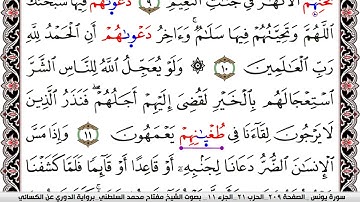 تَحْتِهِمُ ٱلْأَنْهَٰرُ فِي جَنَّٰتِ ٱلنَّعِيمِ ٩ دَعْوَىٰهُمْ فِيهَا سُبْحَٰنَكَ
ٱللَّهُمَّ وَتَحِيَّتُهُمْ فِيهَا سَلَٰمٌ وَءَاخِرُ دَعْوَىٰهُمْ أَنِ ٱلْحَمْدُ لِلَّهِ
رَبِّ ٱلْعَٰلَمِينَ ١٠ ۞ وَلَوْ يُعَجِّلُ ٱللَّهُ لِلنَّاسِ ٱلشَّرَّ
ٱسْتِعْجَالَهُم بِٱلْخَيْرِ لَقُضِيَ إِلَيْهِمْ أَجَلُهُمْ فَنَذَرُ ٱلَّذِينَ
لَا يَرْجُونَ لِقَآءَنَا فِي طُغْيَٰنِهِمْ يَعْمَهُونَ ١١ وَإِذَا مَسَّ
ٱلْإِنسَٰنَ ٱلضُّرُّ دَعَانَا لِجَنۢبِهِۦٓ أَوْ قَاعِدًا أَوْ قَآئِمًا فَلَمَّا كَشَفْنَا
سورة يونس . الصفحة ٢٠٩ . الحزب ٢١ . الجزء ١١ . بصوت الشيخ مفتاح محمد السلطني . برواية الدوري عن الكسائي